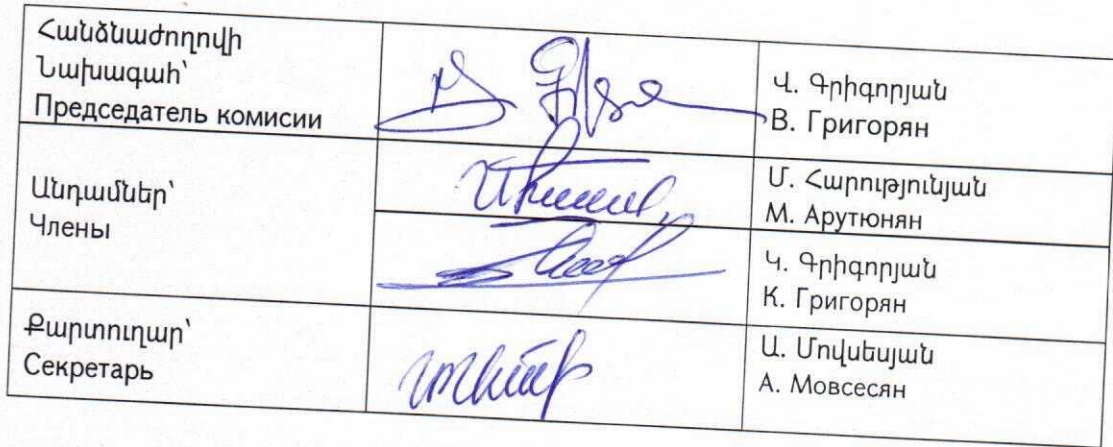 Հանձնաժողովի
Նախագահ՝
Председатель комисии
Վ. Գրիգորյան
В. Григорян
Անդամներ՝
Члены
Մ. Հարությունյան
М. Арутюнян
Կ. Գրիգորյան
К. Григорян
Քարտուղար՝
Секретарь
Ա. Մովսեսյան
А. Мовсесян